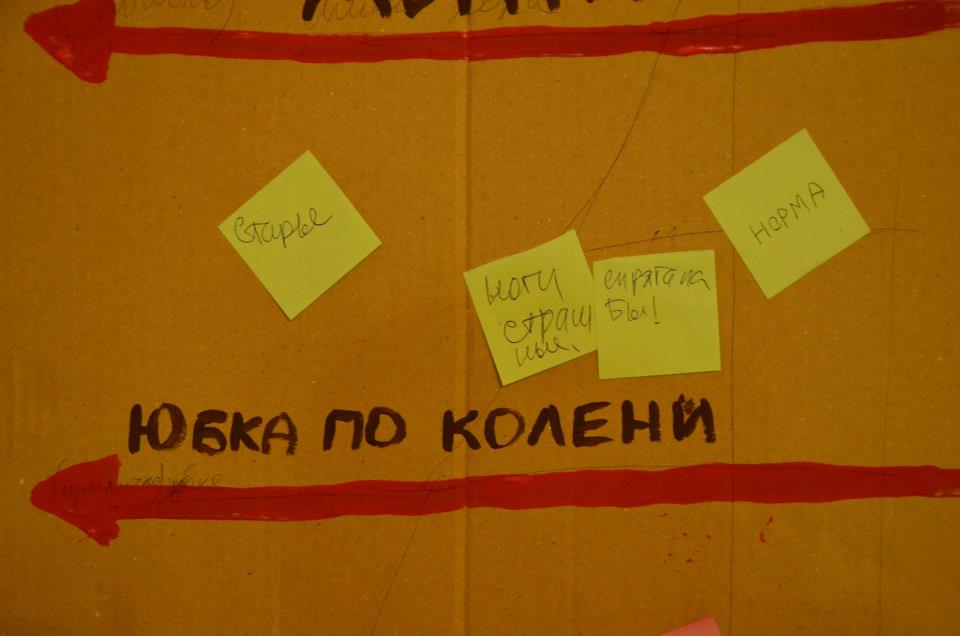 старье
ноги
страш
ные,
спрятала
бы!
НОРМА
ЮБКА ПО КОЛЕНИ